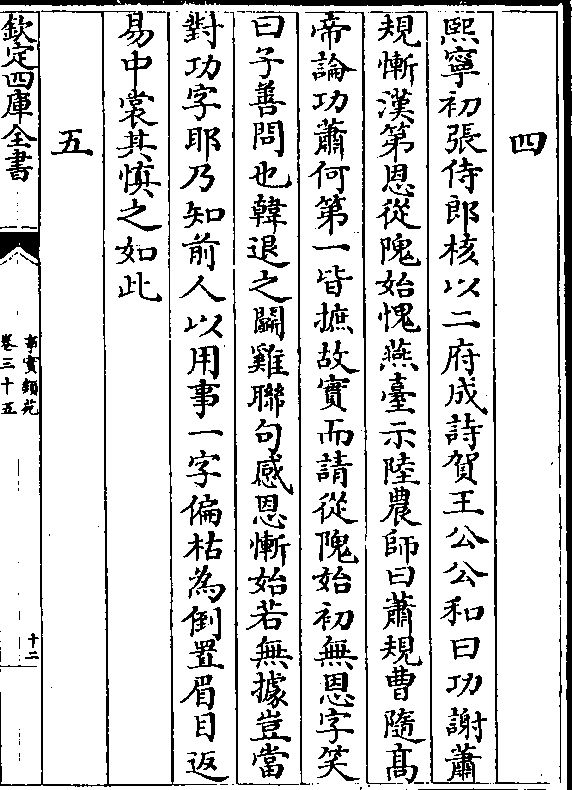 四
熙寧初張侍郎核以二府成詩賀王公公和曰功謝蕭
規慚漢第恩從隗始愧燕臺示陸農師曰蕭規曹隨高
帝論功蕭何第一皆摭故實而請從隗始初無恩字笑
曰子善問也韓退之鬬雞聯句感恩慚始若無據豈當
對功字耶乃知前人以用事一字偏枯為倒置眉目返
易中裳其慎之如此
五
欽定四庫全書
事實類苑
卷三十五
十二